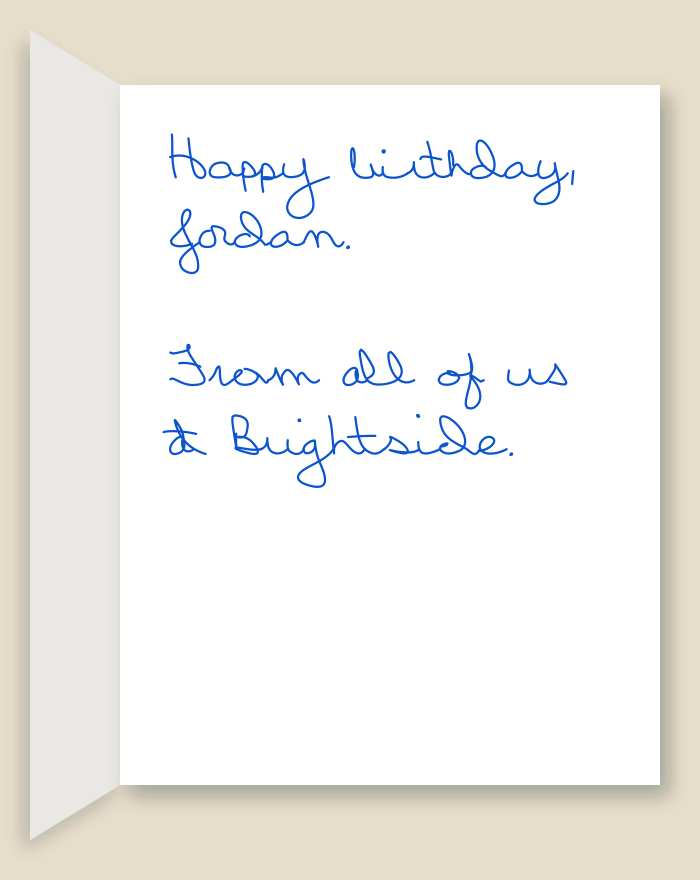 Happy birthday,
Jordan.
From all of us
at Brightside.